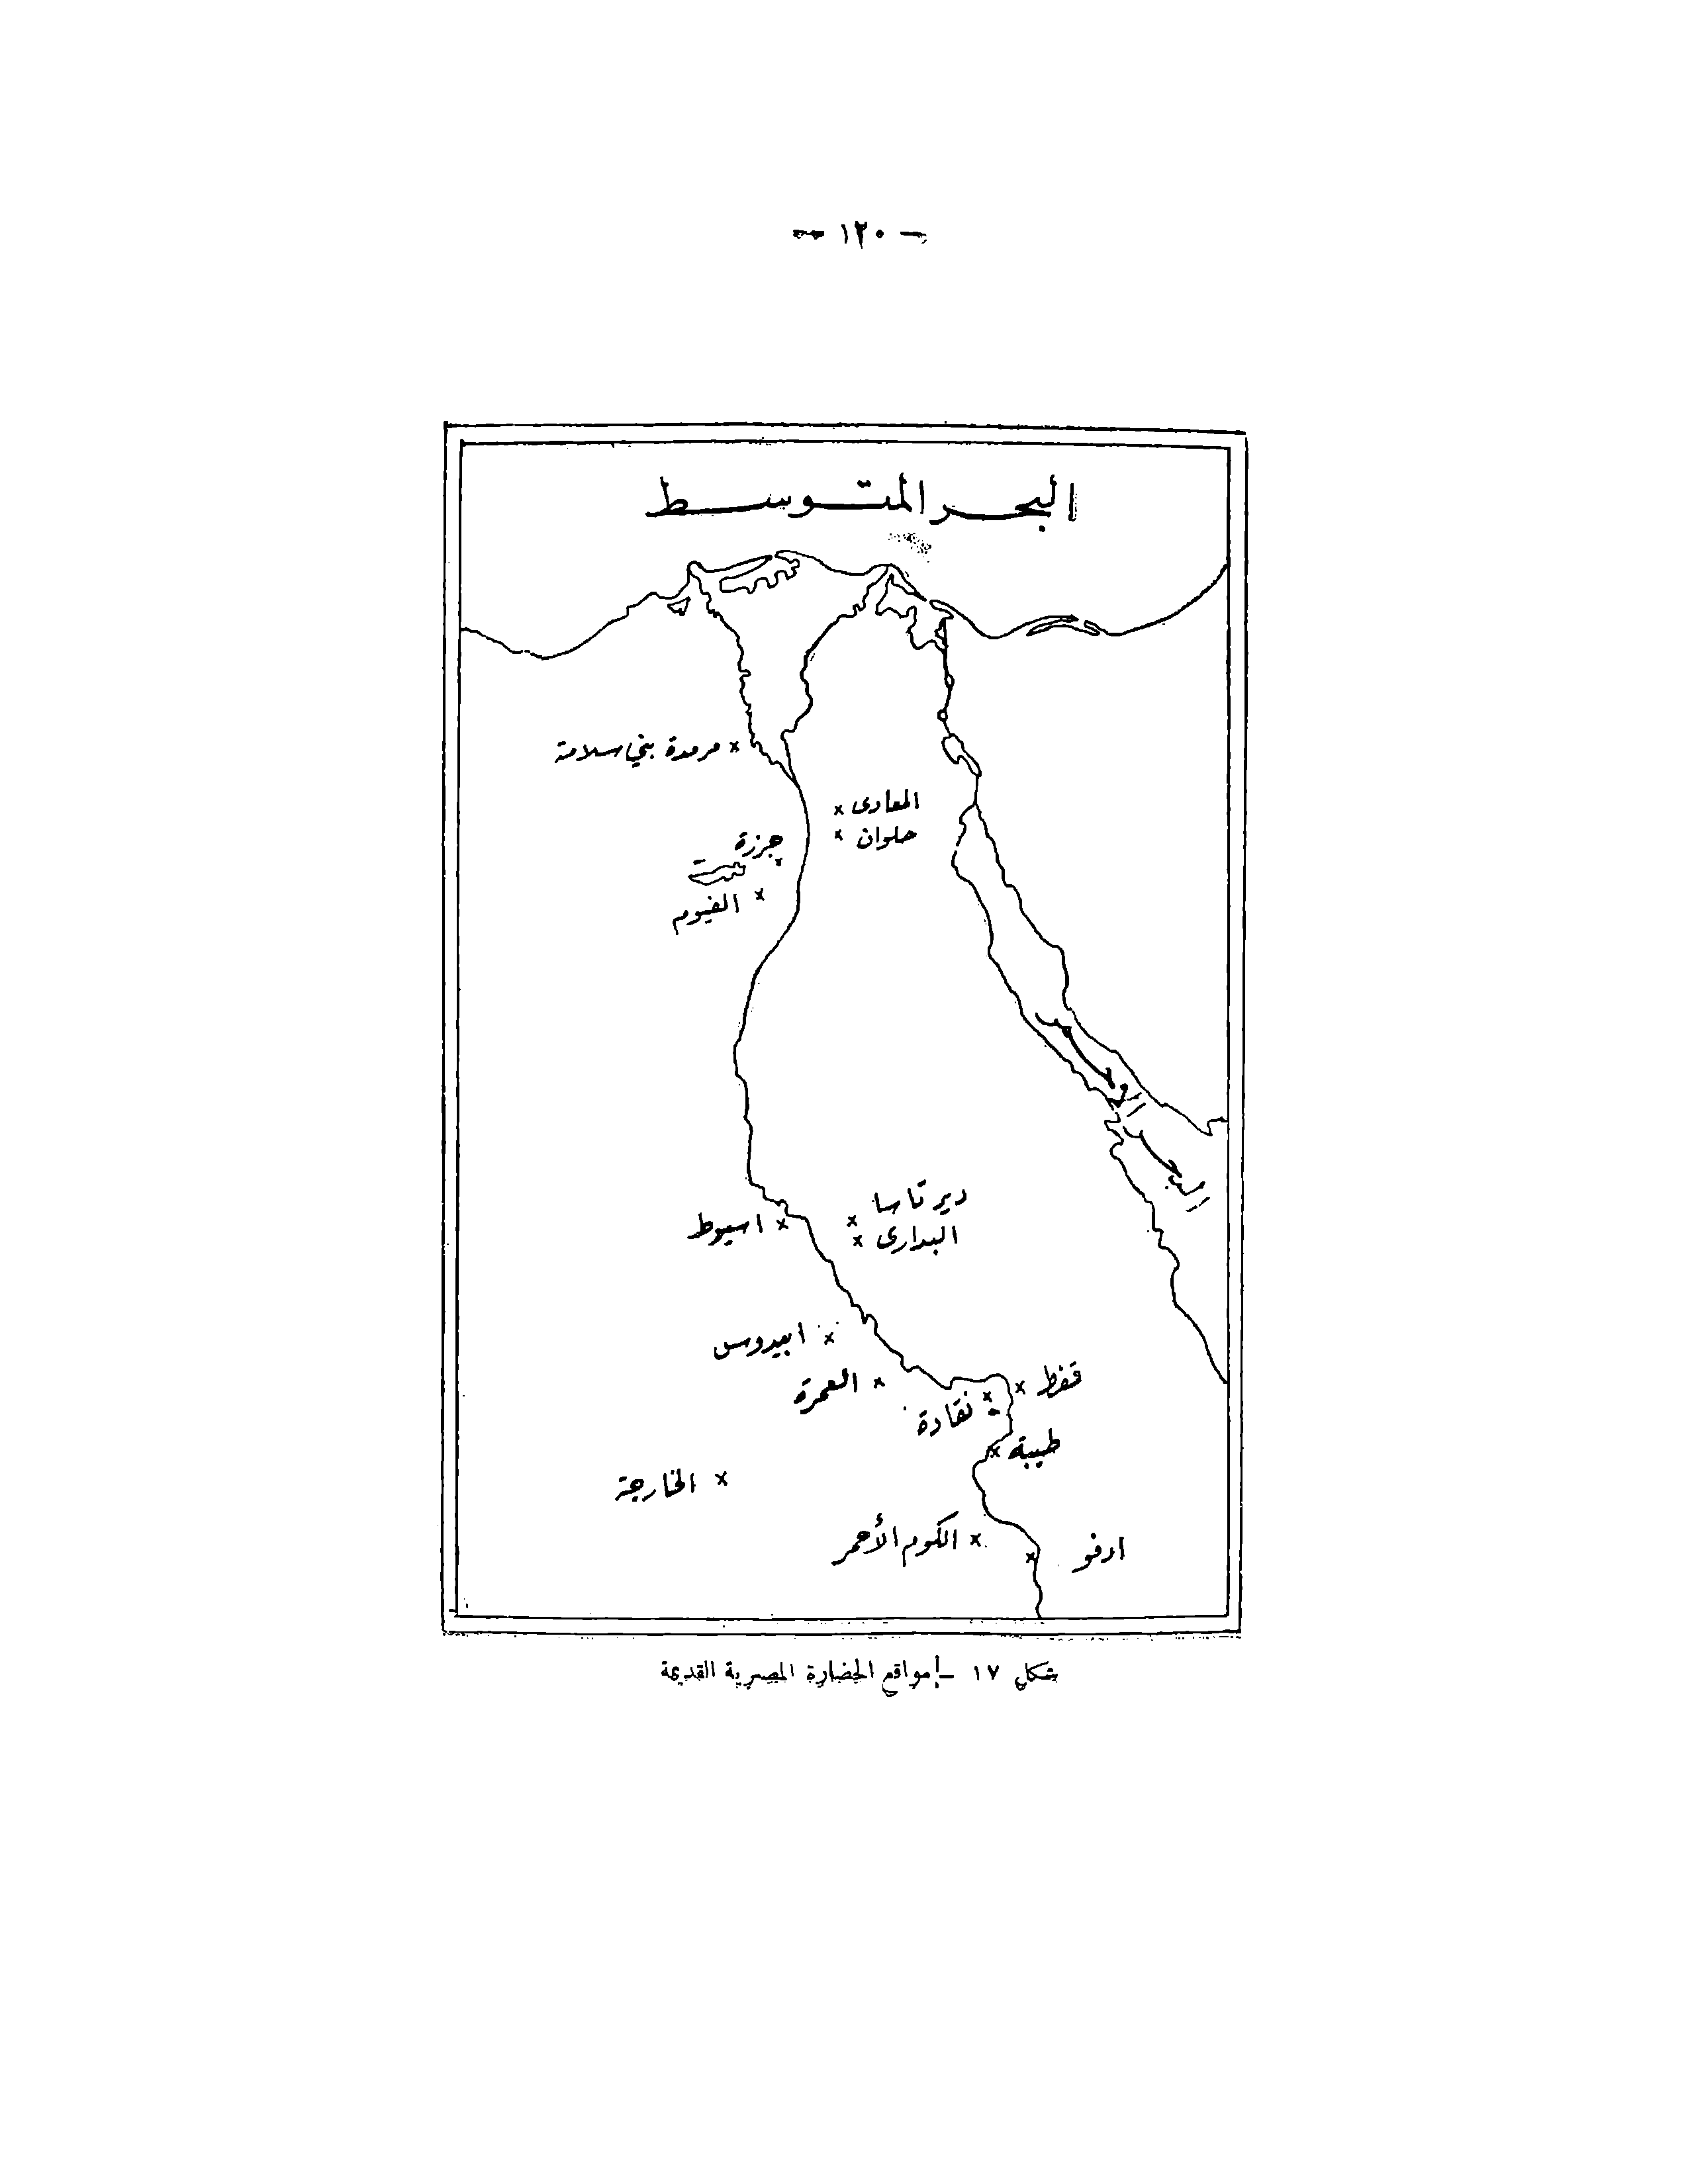 — ١٢٠ —
البحر المتوسط
مرمدة بني سلامة
المعادى
حلوان
جرزة
الفيوم
البحر الأحمر
دير تاسا
البدارى
اسيوط
ابيدوس
العمرة
قفط
نقادة
طيبة
الخارجة
الكوم الأحمر
ادفو
شكل ١٧ - مواقع الحضارة المصرية القديمة